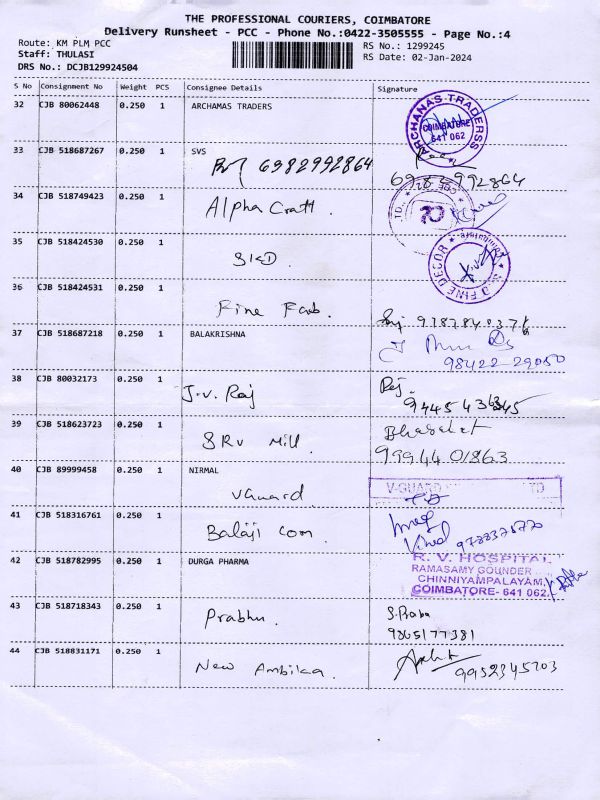 THE PROFESSIONAL COURIERS, COIMBATORE
Delivery Runsheet - PCC - Phone No.:0422-3505555 - Page No.:4
Route: KM PLM PCC
RS No.: 1299245
Staff: THULASI
RS Date: 02-Jan-2024
DRS No.: DCJB129924504
S No Consignment No Weight PCS Consignee Details Signature
32 CJB 80062448 0.250 1 ARCHAMAS TRADERS
ARCHANAS TRADERSS
COIMBATORE
641 062
33 CJB 518687267 0.250 1 SVS
6982992864
34 CJB 518749423 0.250 1
Alpha Craft.
35 CJB 518424530 0.250 1
FINE DECOR
36 CJB 518424531 0.250 1
Fine Fab.
37 CJB 518687218 0.250 1 BALAKRISHNA
98422 29050
38 CJB 80032173 0.250 1
J.V. Raj
Raj.
39 CJB 518623723 0.250 1
SRV Mill.
99944 01863
40 CJB 89999458 0.250 1 NIRMAL
V-GUARD TD
vGuard.
41 CJB 518316761 0.250 1
Balaji Com.
42 CJB 518782995 0.250 1 DURGA PHARMA
R. V. HOSPITAL
RAMASAMY GOUNDER
CHINNIYAMPALAYAM,
COIMBATORE- 641 062.
43 CJB 518718343 0.250 1
Prabhu.
S. Praba
9865177381
44 CJB 518831171 0.250 1
New Ambika.
9952345703